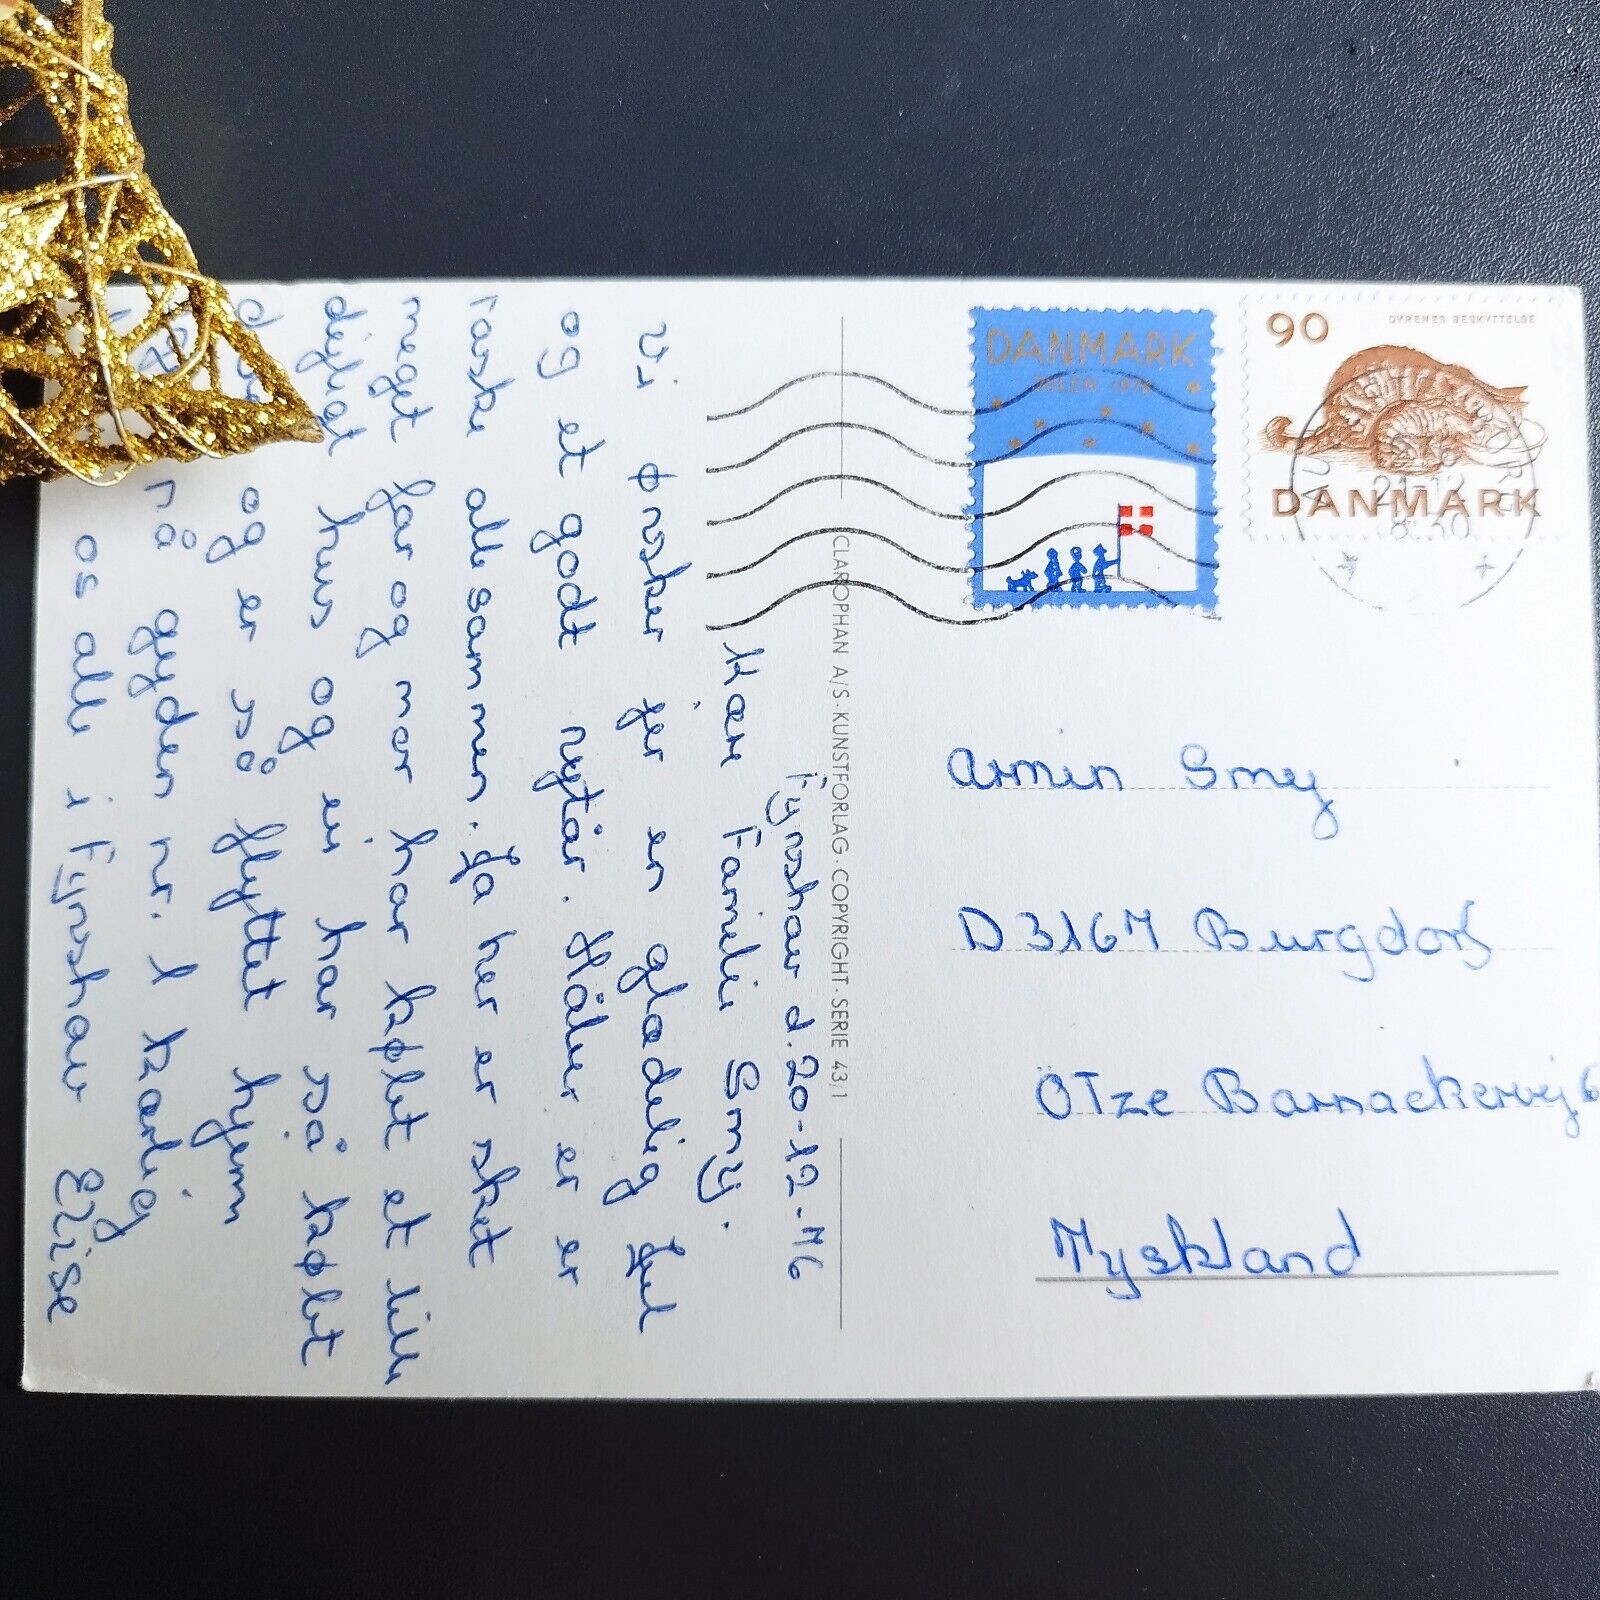 Fynshav d. 20-12-76
Kære Famelie Smy.
Vi ønsker jer en glædelig Jul
og et godt nytår. Håber er er
raske allesammen. Ja her er sket
meget far og mor har købt et lille
dejligt hus og vi har så købt
og er så flyttet hjem
på gyden nr. 1 Kærlig
os alle i Fynshav Elise
CLAROPHAN A/S · KUNSTFORLAG · COPYRIGHT · SERIE 43/1
DANMARK
JULEN 1976
90
DYRENES BESKYTTELSE
DANMARK
21-12
Armin Smy
D 3167 Burgdorf
ÖTze Barnackervej 6
Tyskland